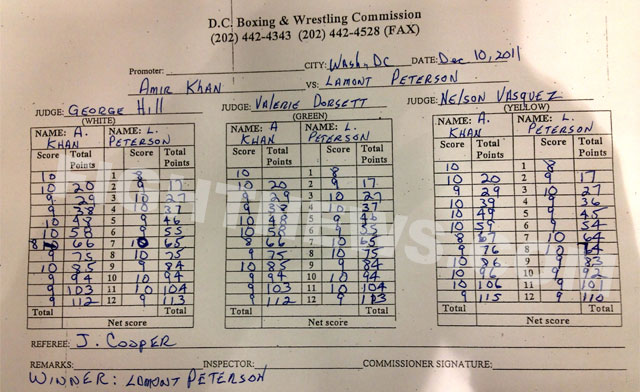 D.C. Boxing & Wrestling Commission
(202) 442-4343 (202) 442-4528 (FAX)
Promoter: CITY: Wash, DC DATE: Dec 10, 2011
Amir Khan VS: Lamont Peterson
JUDGE: George Hill JUDGE: Valerie Dorsett JUDGE: Nelson Vasquez
(WHITE) (GREEN) (YELLOW)
NAME: A. KHAN NAME: L. PETERSON NAME: A KHAN NAME: L. PETERSON NAME: A. KHAN NAME: L. PETERSON
Score Total Points Score Total Points Score Total Points Score Total Points Score Total Points Score Total Points
10 1 8 10 1 8 10 1 8
10 20 2 9 17 10 20 2 9 17 10 20 2 9 17
9 29 3 10 27 9 29 3 10 27 9 29 3 10 27
9 38 4 10 37 4 10 37 10 39 4 9 36
10 48 5 9 46 10 48 5 9 46 10 49 5 9 45
10 58 6 9 55 10 58 6 9 55 10 59 6 9 54
8 66 7 10 65 8 66 7 10 65 8 67 7 10 64
9 75 8 10 75 9 75 8 10 75 9 76 8 10
10 85 9 9 84 10 85 9 9 84 10 86 9 9 83
9 94 10 10 94 9 94 10 10 94 10 96 10 9 92
9 103 11 10 104 9 103 11 10 104 10 106 11 9 101
9 112 12 9 113 9 112 12 9 113 9 115 12 9 110
Total Total Total Total Total Total
Net score Net score Net score
REFEREE: J. Cooper
REMARKS: INSPECTOR: COMMISSIONER SIGNATURE:
WINNER: LAMONT PETERSON